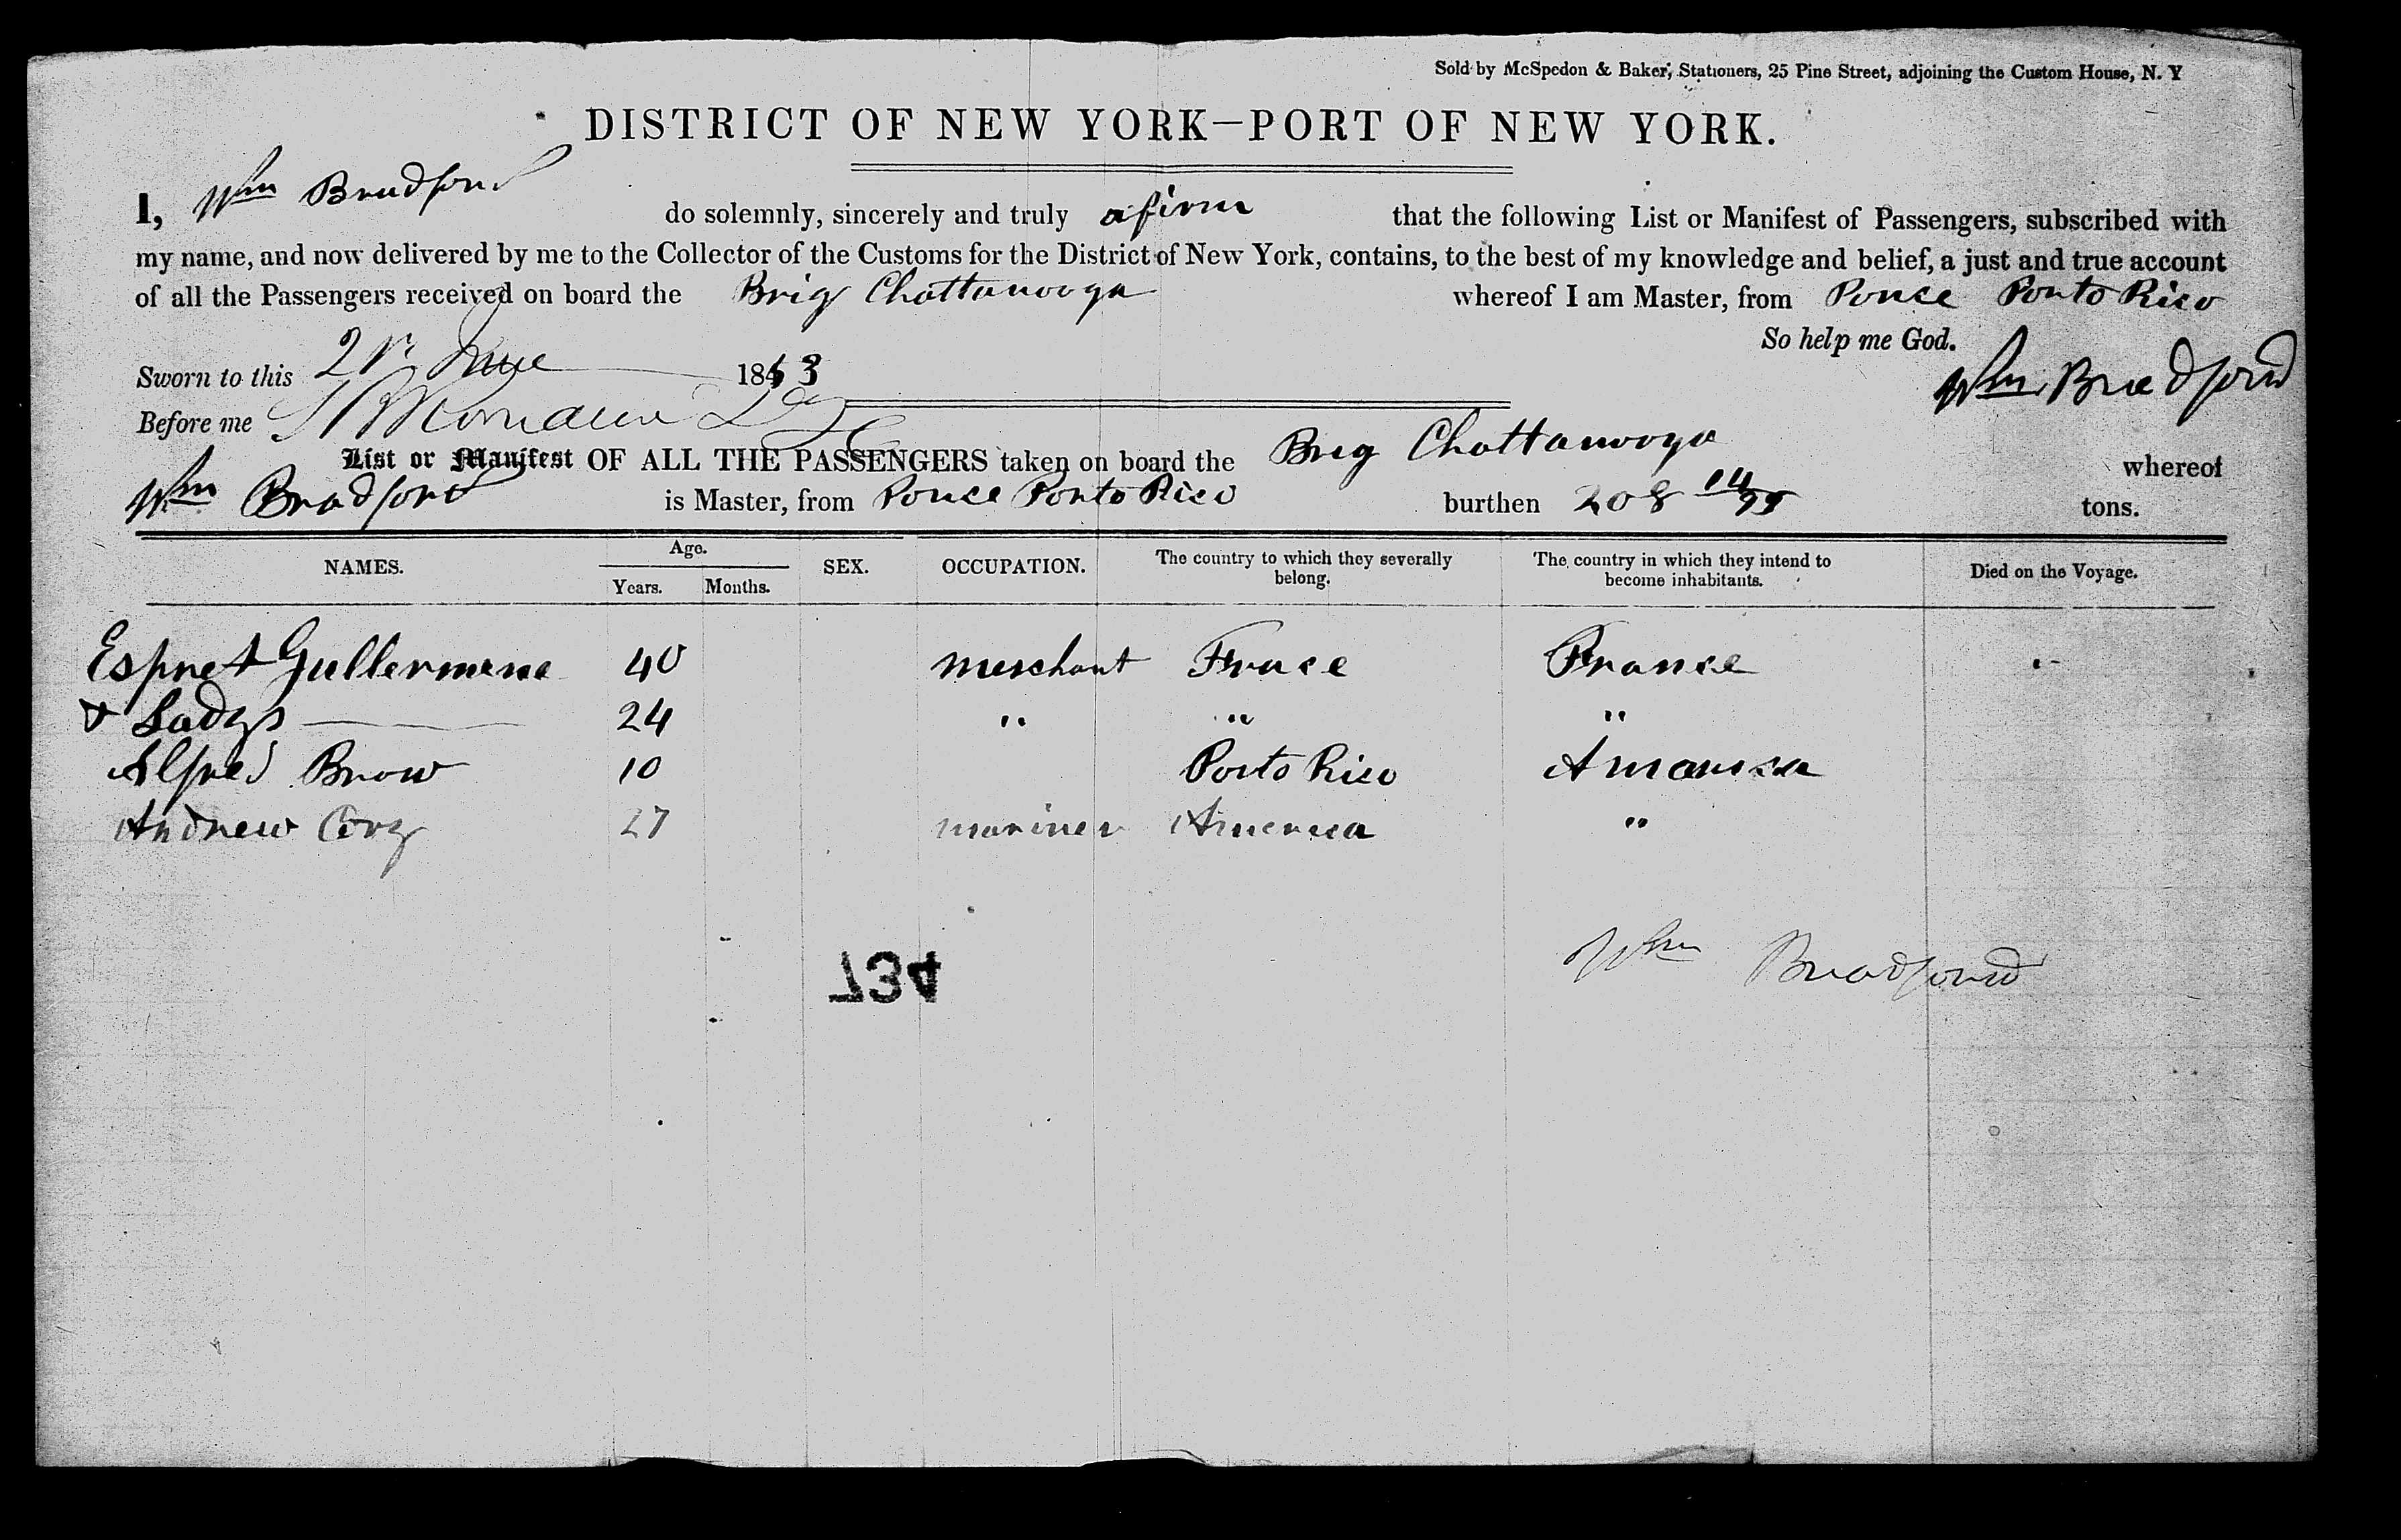 Sold by McSpedon & Baker, Stationers, 25 Pine Street, adjoining the Custom House, N. Y
DISTRICT OF NEW YORK—PORT OF NEW YORK.
I, Wm Bradford do solemnly, sincerely and truly afirm that the following List or Manifest of Passengers, subscribed with
my name, and now delivered by me to the Collector of the Customs for the District of New York, contains, to the best of my knowledge and belief, a just and true account
of all the Passengers received on board the Brig Chattanooga whereof I am Master, from Ponce Porto Rico
So help me God.
Sworn to this 21 June 1853 Wm Bradford
Before me
List or Manifest OF ALL THE PASSENGERS taken on board the Brig Chattanooga whereof
Wm Bradford is Master, from Ponce Porto Rico burthen 208 14/95 tons.
NAMES. Age. Years. Months. SEX. OCCUPATION. The country to which they severally belong. The country in which they intend to become inhabitants. Died on the Voyage.
Espret Gullermene 40 merchant Frace France
& Ladys 24 " " "
Alfred Brow 10 Porto Rico Amarica
Andrew Cory 27 mariner America "
Wm Bradford
734